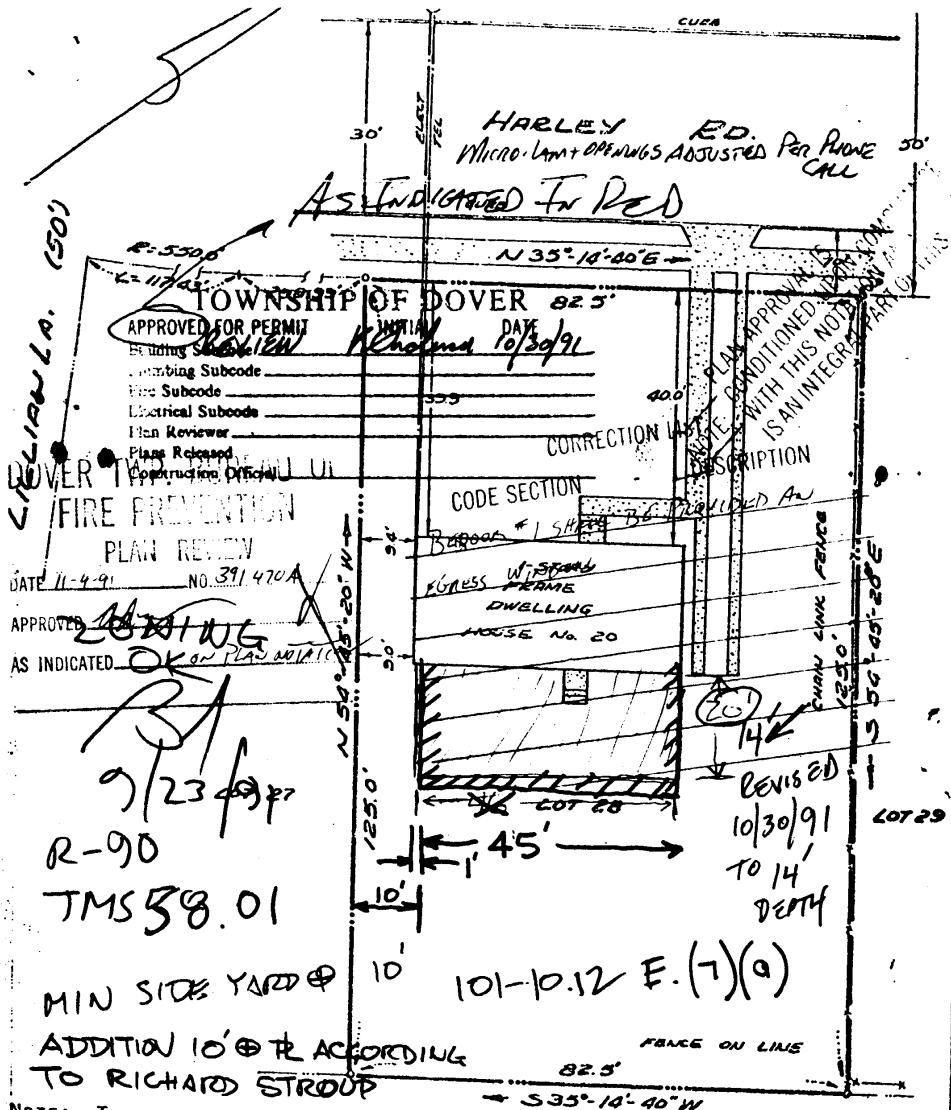 CURB
30'
ELECT
TEL
HARLEY RD.
MICRO-LAM + OPENINGS ADJUSTED PER PHONE
CALL
50'
AS INDICATED IN RED
LILLIAN LA. (50')
R=550.0'
N 35°-14'-40" E
TOWNSHIP OF DOVER
82.5'
APPROVED FOR PERMIT INITIAL DATE
REVIEW 10/30/91
Building Subcode
Plumbing Subcode
Fire Subcode
Electrical Subcode
Plan Reviewer
Plans Released
Construction Official
39.9
40.0
NOTE: PLAN APPROVAL IS
CONDITIONED UPON
WITH THIS NOTATION
IS AN INTEGRAL PART OF THIS
CORRECTION LIST
CODE SECTION
DESCRIPTION
DOVER TWP. BUREAU OF
FIRE PREVENTION
PLAN REVIEW
DATE 11-4-91 NO. 391470A
APPROVED
AS INDICATED ON PLAN
ZONING
OK
9/23
BEDROOM #1 SHALL BE PROVIDED AN
EGRESS WINDOW
FRAME
DWELLING
HOUSE No. 20
9.4'
9.0'
N 54°-45'-20" W
125.0'
CHAIN LINK FENCE
125.0'
S 54°-45'-20" E
20'
14'
REVISED
10/30/91
TO 14'
DEPTH
LOT 28
LOT 29
45'
1'
10'
R-90
TMS 58.01
MIN SIDE YARD @ 10'
ADDITION 10' @ PL ACCORDING
TO RICHARD STROUP
101-10.12 E.(7)(a)
FENCE ON LINE
82.5'
S 35°-14'-40" W